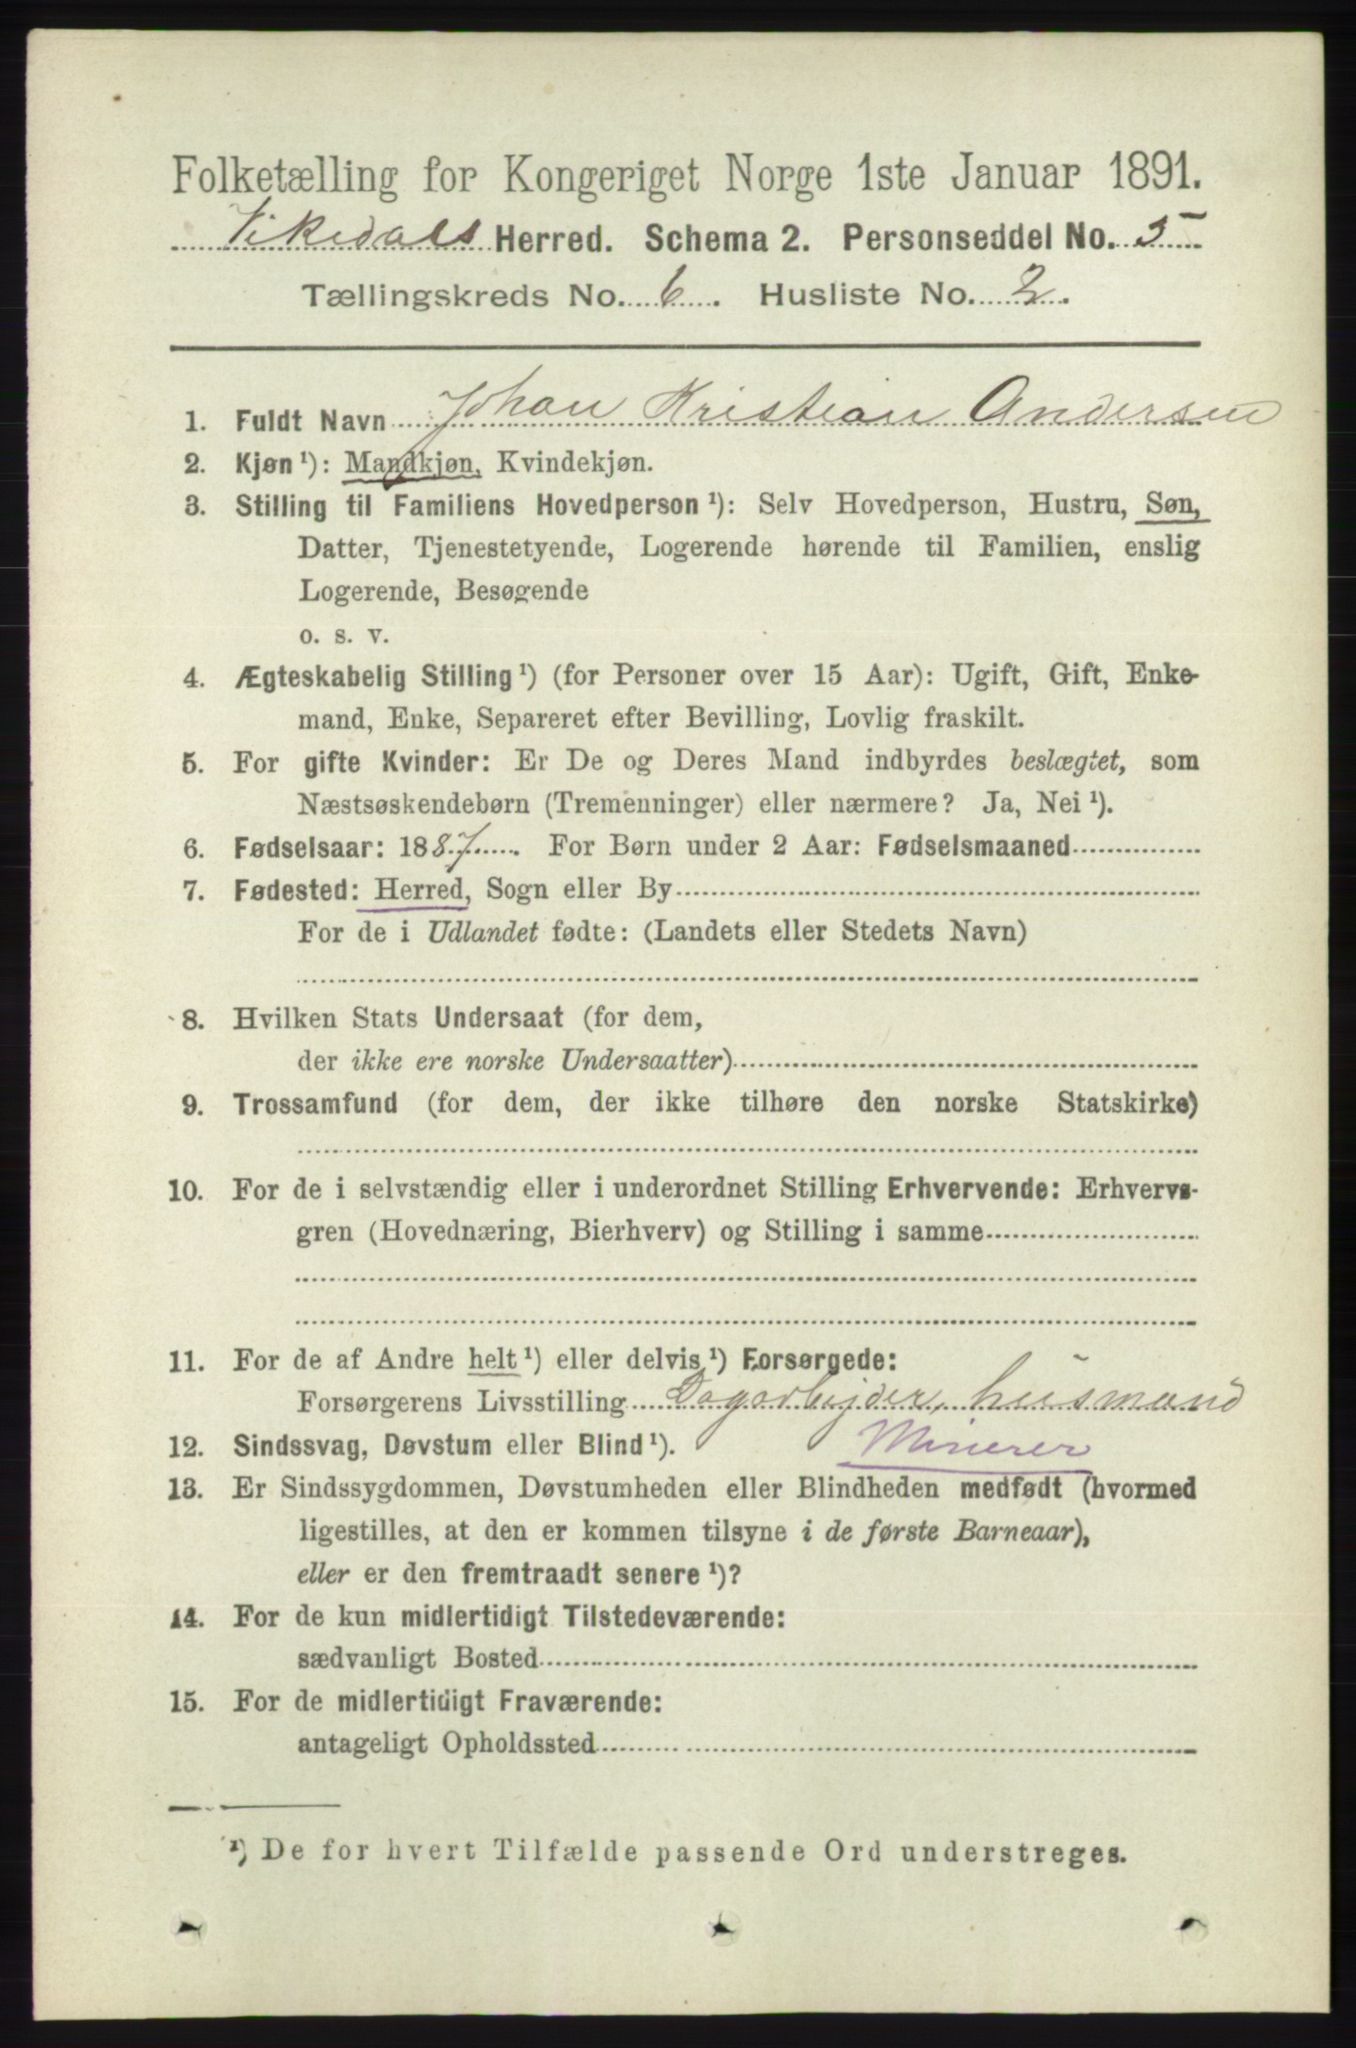 Folketælling for Kongeriget Norge 1ste Januar 1891.
Vikedals Herred. Schema 2. Personseddel No. 5
Tællingskreds No. 6. Husliste No. 2.
1. Fuldt Navn Johan Kristian Andersen
2. Kjøn ¹): Mandkjøn, Kvindekjøn.
3. Stilling til Familiens Hovedperson ¹): Selv Hovedperson, Hustru, Søn,
Datter, Tjenestetyende, Logerende hørende til Familien, enslig
Logerende, Besøgende
o. s. v.
4. Ægteskabelig Stilling ¹) (for Personer over 15 Aar): Ugift, Gift, Enke-
mand, Enke, Separeret efter Bevilling, Lovlig fraskilt.
5. For gifte Kvinder: Er De og Deres Mand indbyrdes beslægtet, som
Næstsøskendebørn (Tremenninger) eller nærmere? Ja, Nei ¹).
6. Fødselsaar: 1887. For Børn under 2 Aar: Fødselsmaaned
7. Fødested: Herred, Sogn eller By
For de i Udlandet fødte: (Landets eller Stedets Navn)
8. Hvilken Stats Undersaat (for dem,
der ikke ere norske Undersaatter)
9. Trossamfund (for dem, der ikke tilhøre den norske Statskirke)
10. For de i selvstændig eller i underordnet Stilling Erhvervende: Erhvervs-
gren (Hovednæring, Bierhverv) og Stilling i samme
11. For de af Andre helt ¹) eller delvis ¹) Forsørgede:
Forsørgerens Livsstilling Dagarbejder, husmand
12. Sindssvag, Døvstum eller Blind ¹). Minerer
13. Er Sindssygdommen, Døvstumheden eller Blindheden medfødt (hvormed
ligestilles, at den er kommen tilsyne i de første Barneaar),
eller er den fremtraadt senere ¹)?
14. For de kun midlertidigt Tilstedeværende:
sædvanligt Bosted
15. For de midlertidigt Fraværende:
antageligt Opholdssted
¹) De for hvert Tilfælde passende Ord understreges.